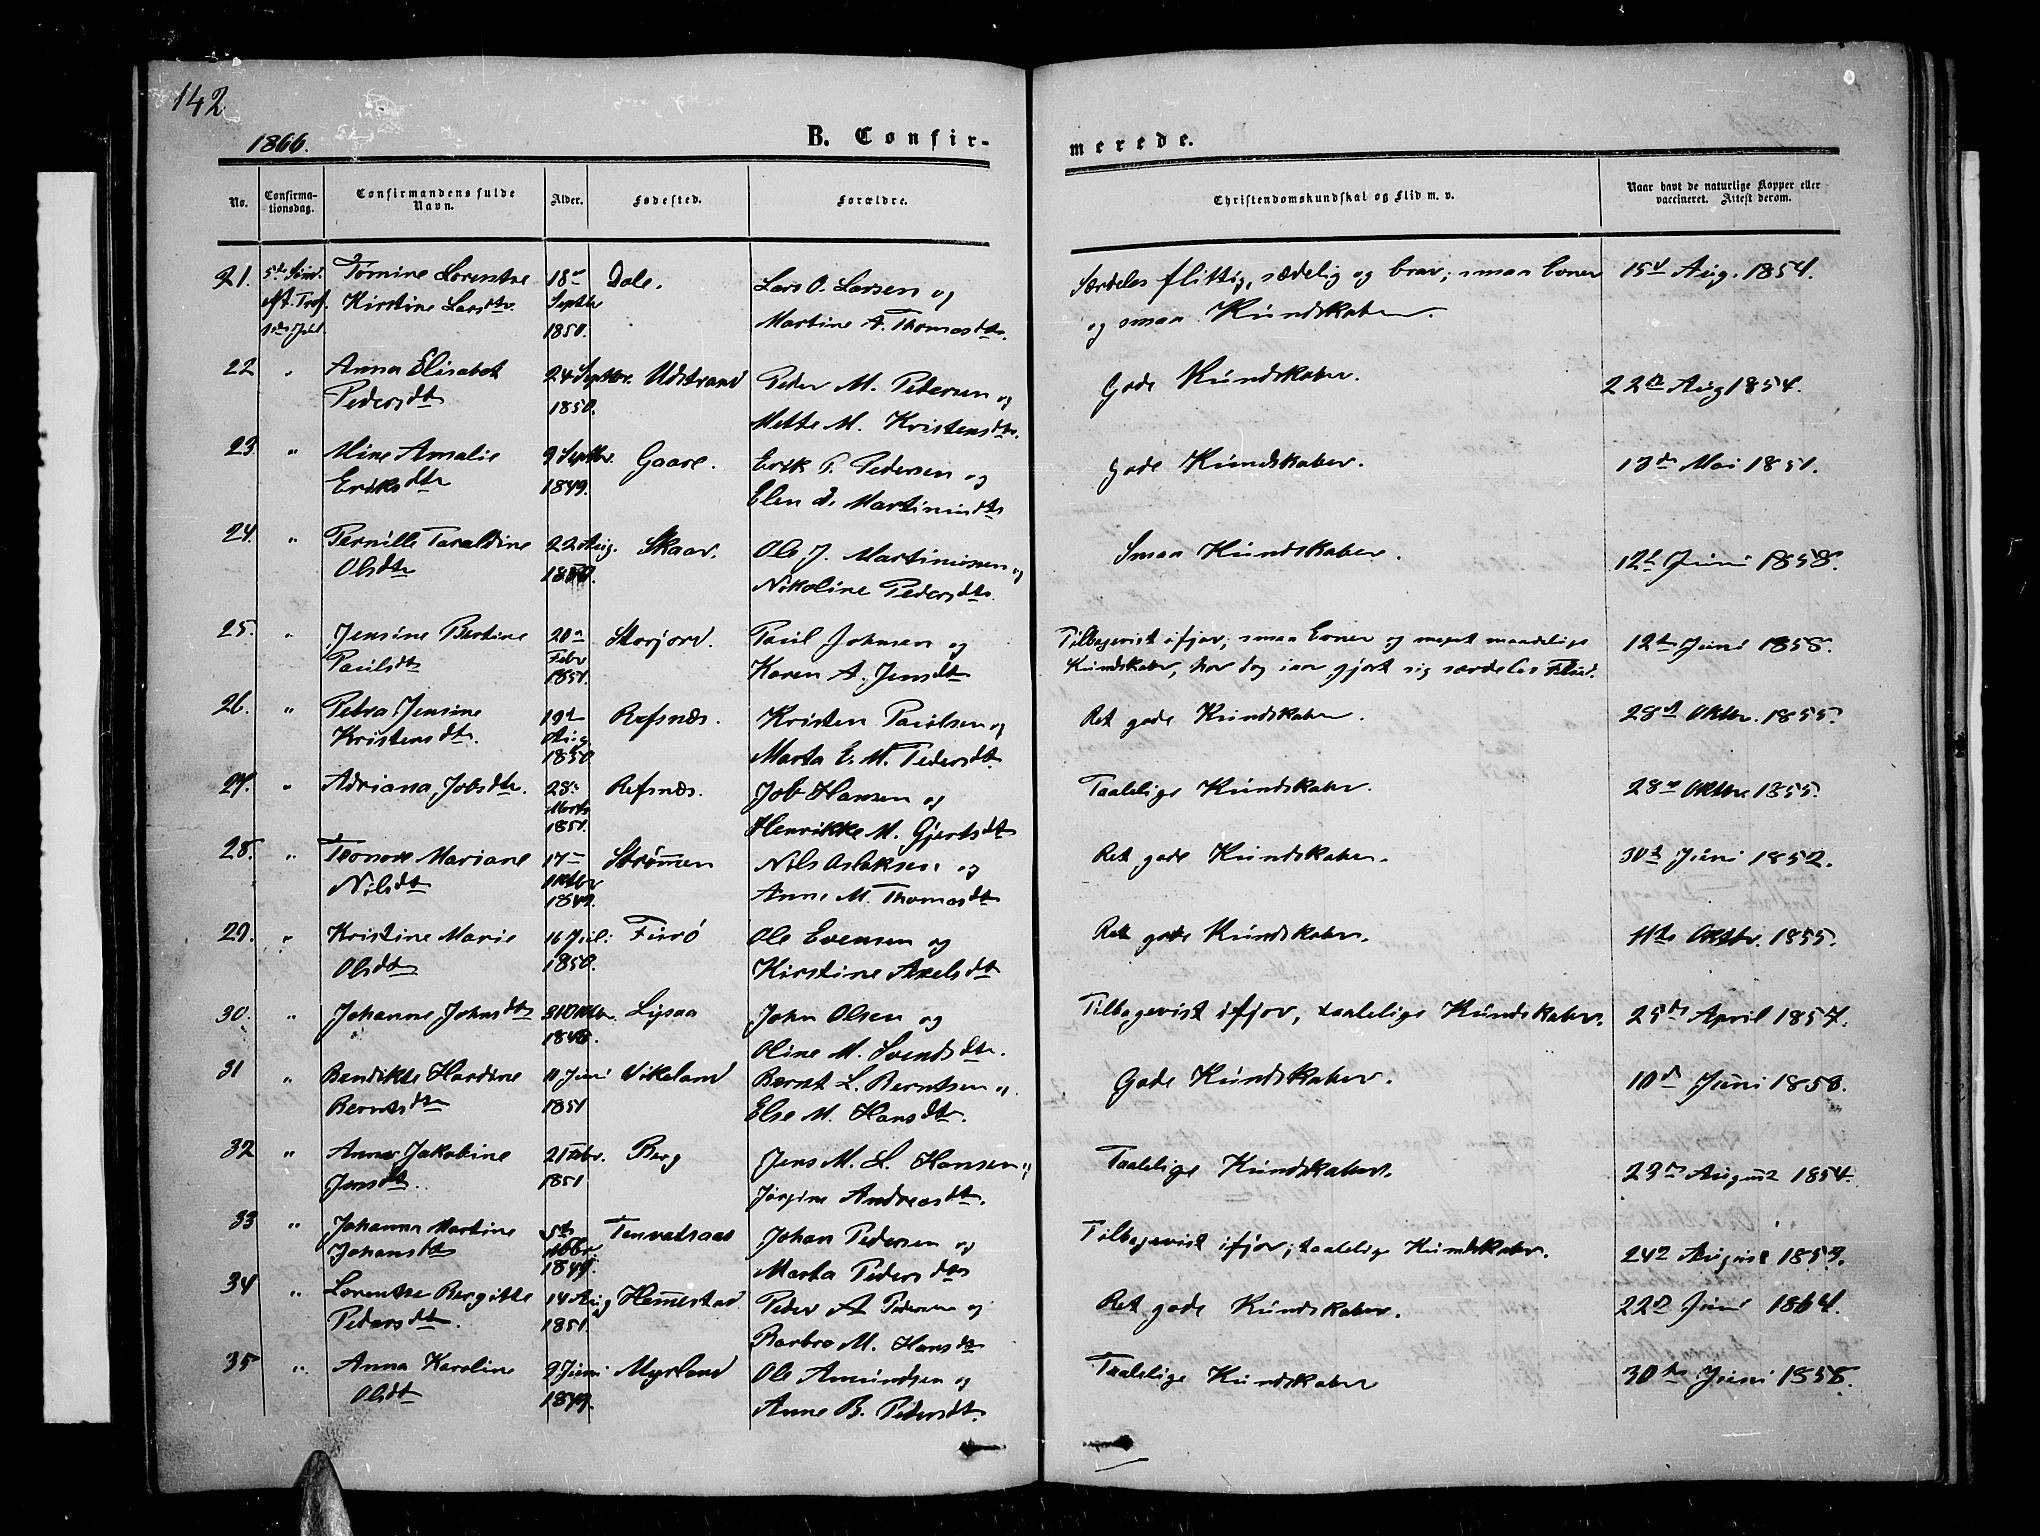 142
1866.
B. Confir-
merede.
No.
Confirma-
tionsdag.
Confirmandens fulde
Navn.
Alder.
Fødested.
Forældre.
Christendomskundskal og Flid m. v.
Naar havt de naturlige Kopper eller
vaccineret. Attest derom.
21. 5te Sønd. Tomine Lorentse 18de Dale. Lars O. Larsen og Særdeles flittig, sædelig og brav; smaa Evner 15de Aug. 1854.
eft. Tref. Kirstine Larsdtr. Septbr Martine A. Thomasdtr. og smaa Kundskaber.
1ste Juli 1850.
22 " Anna Elisabet 24 Septbr. Udstrand Peder M. Pedersen og Gode Kundskaber. 22de Aug 1854.
Pedersdtr 1850. Mette M. Kristensdtr.
23 " Mine Amalie 9 Septbr. Gaare. Erik P. Pedersen og Gode Kundskaber. 13de Mai 1851.
Eriksdtr 1849. Elen D. Martinusdtr
24. " Pernille Taraldine 22 Aug. Skaar. Ole J. Martinussen og Smaa Kundskaber. 12te Juni 1858.
Olsdtr 1850. Nikoline Pedersdtr.
25. " Jensine Bertine 20de Storjord. Paul Johnsen og Tilbagevist ifjor; smaa Evner og meget maadelige 12te Juni 1858.
Paulsdtr Febr Karen A. Jensdtr Kundskaber, har dog iaar gjort sig særdeles Flid.
1851.
26. " Petra Jensine 19de Refsnæs. Kristen Paulsen og Ret gode Kundskaber. 28de Oktbr. 1855.
Kristensdtr. Aug Marta E. M. Pedersdtr.
1850
27. " Adriana Jobsdtr. 28de Refsnæs. Job Hansen og Taalelige Kundskaber. 28de Oktbr 1855.
Marts Henrikke M. Gjertsdtr
1851.
28. " Leonore Mariane 17de Strømmen Nils Aslaksen og Ret gode Kundskaber. 30te Juni 1852.
Nilsdtr Oktbr Anne M. Thomasdtr
1849.
29. " Kristine Marie 16 Jul. Furø Ole Evensen og Ret gode Kundskaber. 11te Oktbr. 1855.
Olsdtr 1850. Kirstine Axelsdtr
30. " Johanne Johnsdtr 31 Oktbr. Lysaa John Olsen og Tilbagevist ifjor, taalelige Kundskaber. 25de April 1857.
1848. Oline M. Svendsdtr.
31 " Bendikte Hardine 11 Juni Vikeland Bernt L. Berntsen og Gode Kundskaber. 10de Juni 1858.
Berntsdtr 1851 Else M. Hansdtr.
32 " Anna Jakobine 21 Febr. Berg Jens M. L. Hansen og Taalelige Kundskaber. 23de August 1854.
Jensdtr. 1851 Jørgine Andreasdtr.
33 " Johanna Martine 5te Tenvatsaas Johan Pedersen og Tilbagevist ifjor; taalelige Kundskaber. 24de August 1853.
Johansdtr Novbr. Marta Pedersdtr
1849.
34 " Lorentse Bergitte 14 Aug Hemmestad Peder A Pedersen og Ret gode Kundskaber. 22de Juni 1864.
Pedersdtr. 1851. Barbro M. Hansdtr
35 " Anna Karoline 9 Juni Myrland Ole Amundsen og Taalelige Kundskaber 30te Juni 1858.
Olsdtr 1849. Anne B. Pedersdtr.